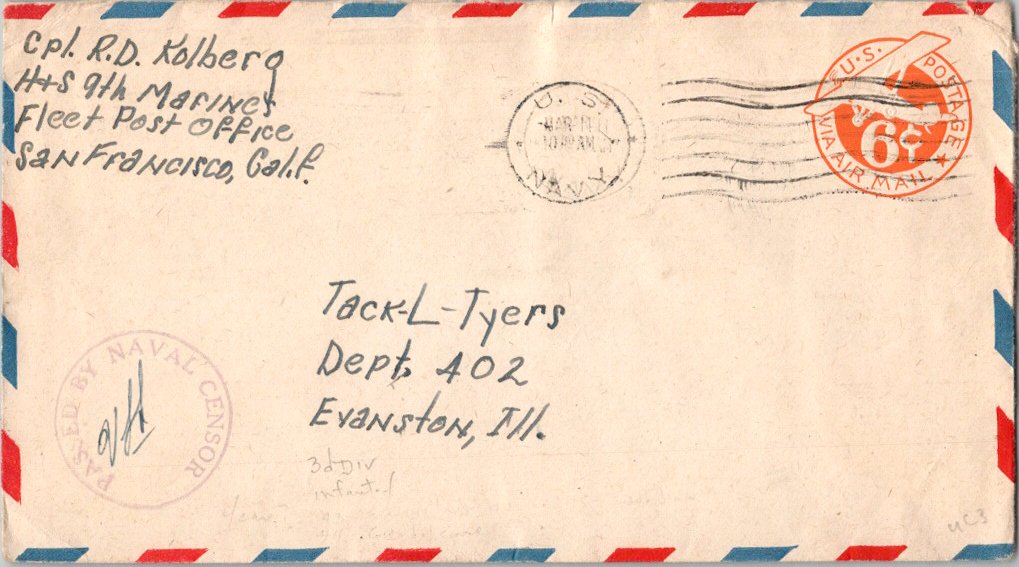 Cpl. R.D. Kolberg
H+S 9th Marines
Fleet Post Office
San Francisco, Calif.
U.S. POSTAGE
6¢
VIA AIR MAIL
U. S.
MAR 11
AM
NAVY
Tack-L-Tyers
Dept. 402
Evanston, Ill.
PASSED BY NAVAL CENSOR
3d Div
UC3